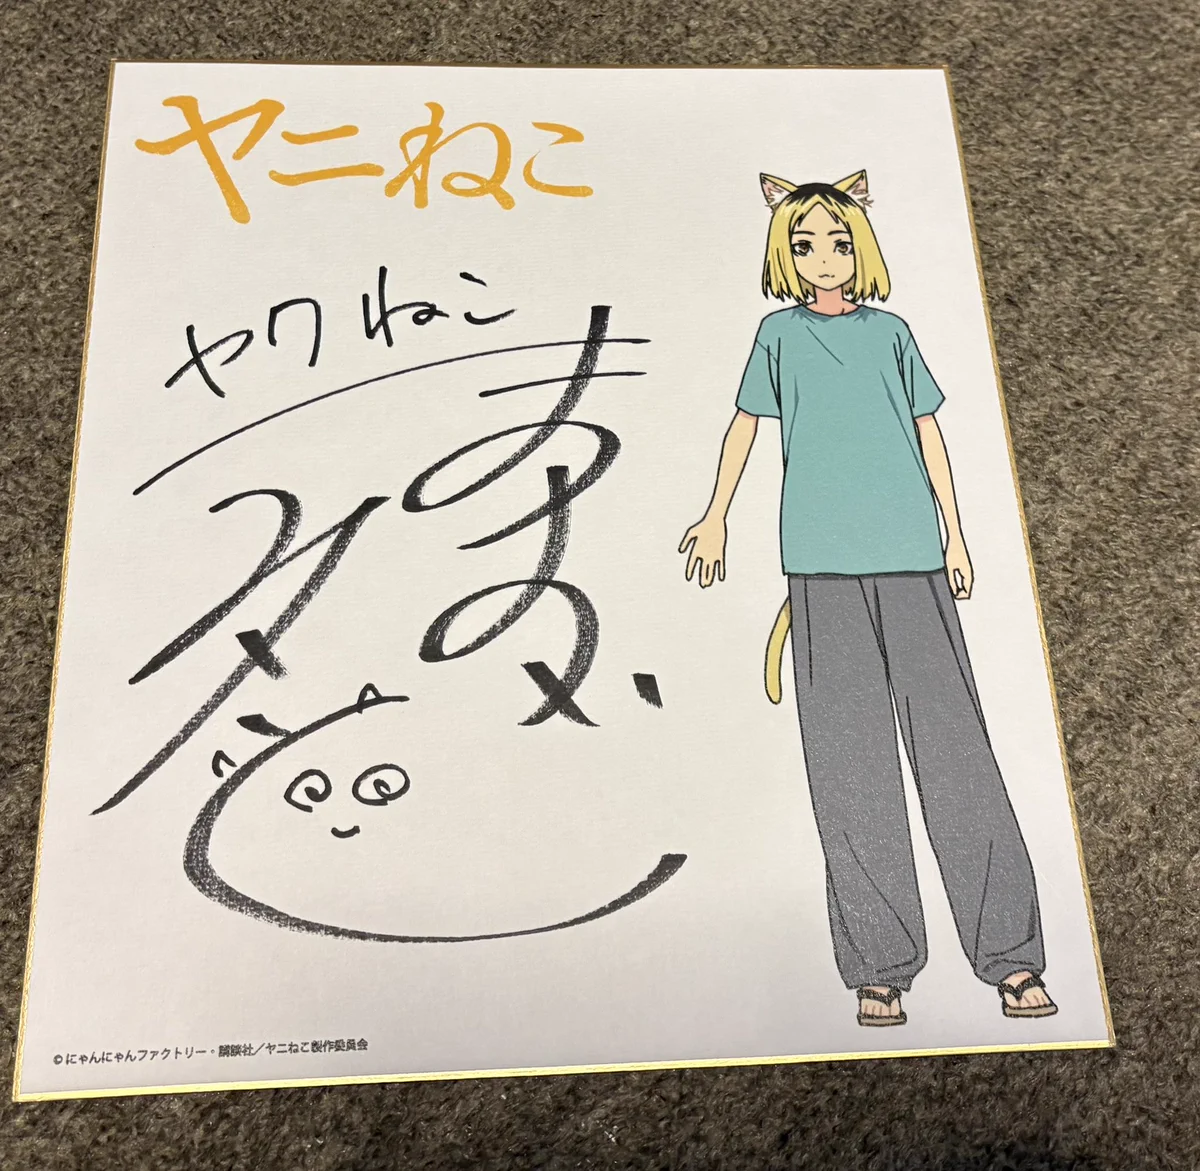 ヤニねこ
ヤクねこ
©にゃんにゃんファクトリー・講談社／ヤニねこ製作委員会